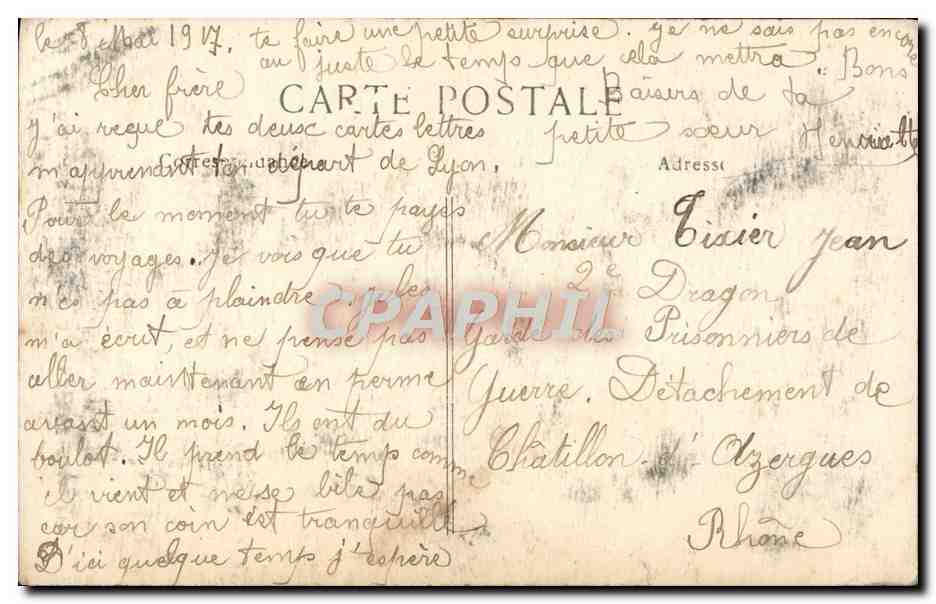 le 8 Mai 1917.
Cher frère
CARTE POSTALE
J'ai reçue tes deux cartes lettres
Correspondance
m'apprenant ton départ de Lyon.
Pour le moment tu te payes
des voyages. Je vois que tu
n'es pas à plaindre. Jules
m'a écrit, et ne pense pas
aller maintenant en perme
avant un mois. Ils ont du
boulot. Il prend le temps comme
il vient et ne se bile pas
car son coin est tranquille
D'ici quelque temps j'espère
te faire une petite surprise. Je ne sais pas encore
au juste le temps que cela mettra. Bons
Baisers de ta
petite sœur Henriette
Adresse
Monsieur Tixier Jean
2e Dragon
Garde des Prisonniers de
Guerre. Détachement de
Châtillon-d'Azergues
Rhône
CPAPHIL